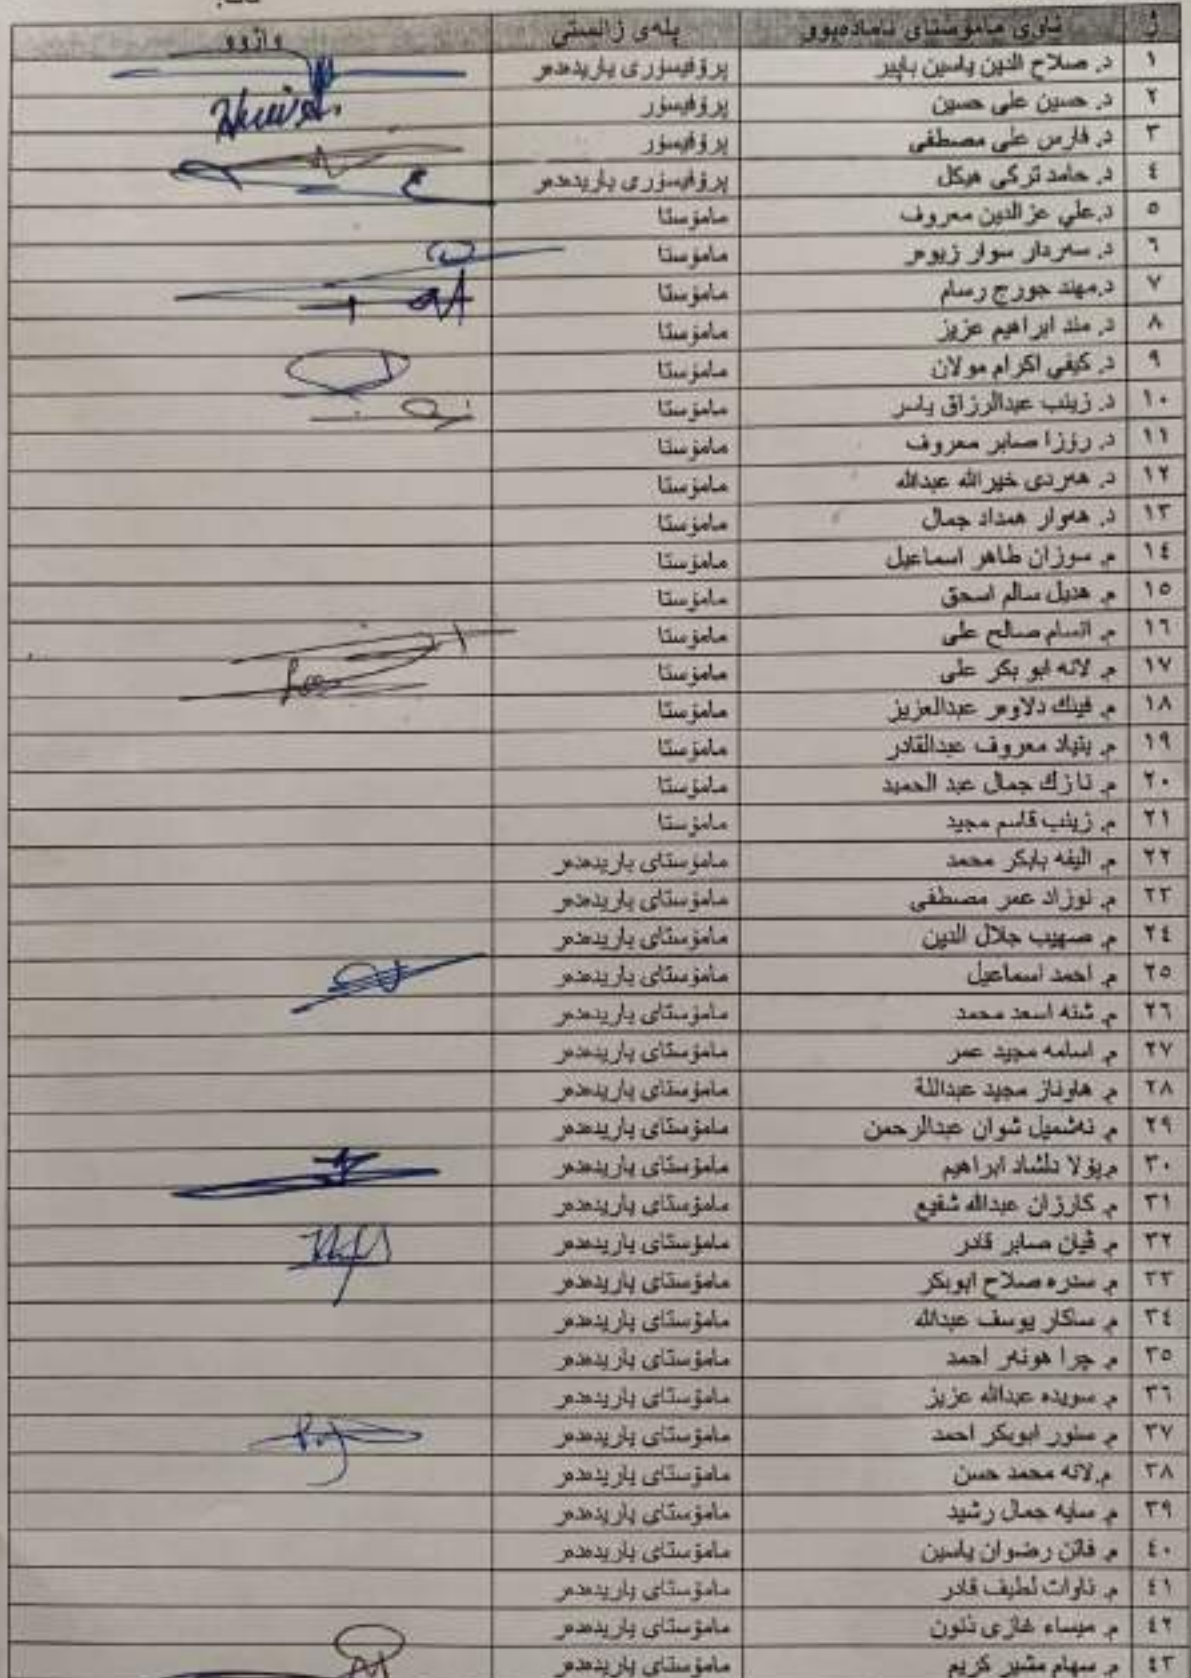 ژ ناوی مامۆستای ئامادەبوو پلەی زانستی واژوو
١ د. صلاح الدين ياسين بابير پرۆفیسۆری یاریدەدەر
٢ د. حسين على حسين پرۆفیسۆر
٣ د. فارس على مصطفى پرۆفیسۆر
٤ د. حامد تركى هيكل پرۆفیسۆری یاریدەدەر
٥ د.علي عز الدين معروف مامۆستا
٦ د. سەردار سوار زیوەر مامۆستا
٧ د.مهند جورج رسام مامۆستا
٨ د. مند ابراهيم عزيز مامۆستا
٩ د. كيفي اكرام مولان مامۆستا
١٠ د. زينب عبدالرزاق ياسر مامۆستا
١١ د. رۆزا صابر معروف مامۆستا
١٢ د. هەردی خيرالله عبدالله مامۆستا
١٣ د. هەوار همداد جمال مامۆستا
١٤ م. سوزان طاهر اسماعيل مامۆستا
١٥ م. هديل سالم اسحق مامۆستا
١٦ م. صالح على مامۆستا
١٧ م. لانه ابو بكر على مامۆستا
١٨ م. فينك دلاوەر عبدالعزيز مامۆستا
١٩ م. بنياد معروف عبدالقادر مامۆستا
٢٠ م. نازك جمال عبد الحميد مامۆستا
٢١ م. زينب قاسم مجيد مامۆستا
٢٢ م. اليفه بابكر محمد مامۆستای یاریدەدەر
٢٣ م. نوزاد عمر مصطفى مامۆستای یاریدەدەر
٢٤ م. صهيب جلال الدين مامۆستای یاریدەدەر
٢٥ م. احمد اسماعيل مامۆستای یاریدەدەر
٢٦ م. شنه اسعد محمد مامۆستای یاریدەدەر
٢٧ م. اسامه مجيد عمر مامۆستای یاریدەدەر
٢٨ م. هاوناز مجيد عبداللة مامۆستای یاریدەدەر
٢٩ م. نەشمیل شوان عبدالرحمن مامۆستای یاریدەدەر
٣٠ م.پۆلا دلشاد ابراهيم مامۆستای یاریدەدەر
٣١ م. كارزان عبدالله شفيع مامۆستای یاریدەدەر
٣٢ م. ڤيان صابر قادر مامۆستای یاریدەدەر
٣٣ م. سدره صلاح ابوبكر مامۆستای یاریدەدەر
٣٤ م. ساكار يوسف عبدالله مامۆستای یاریدەدەر
٣٥ م. چرا هونەر احمد مامۆستای یاریدەدەر
٣٦ م. سويده عبدالله عزيز مامۆستای یاریدەدەر
٣٧ م. سنور ابوبكر احمد مامۆستای یاریدەدەر
٣٨ م.لانه محمد حسن مامۆستای یاریدەدەر
٣٩ م. سايه جمال رشيد مامۆستای یاریدەدەر
٤٠ م. فاتن رضوان ياسين مامۆستای یاریدەدەر
٤١ م. ئاوات لطيف قادر مامۆستای یاریدەدەر
٤٢ م. ميساء غازى ذنون مامۆستای یاریدەدەر
٤٣ م. سهام مشير كريم مامۆستای یاریدەدەر